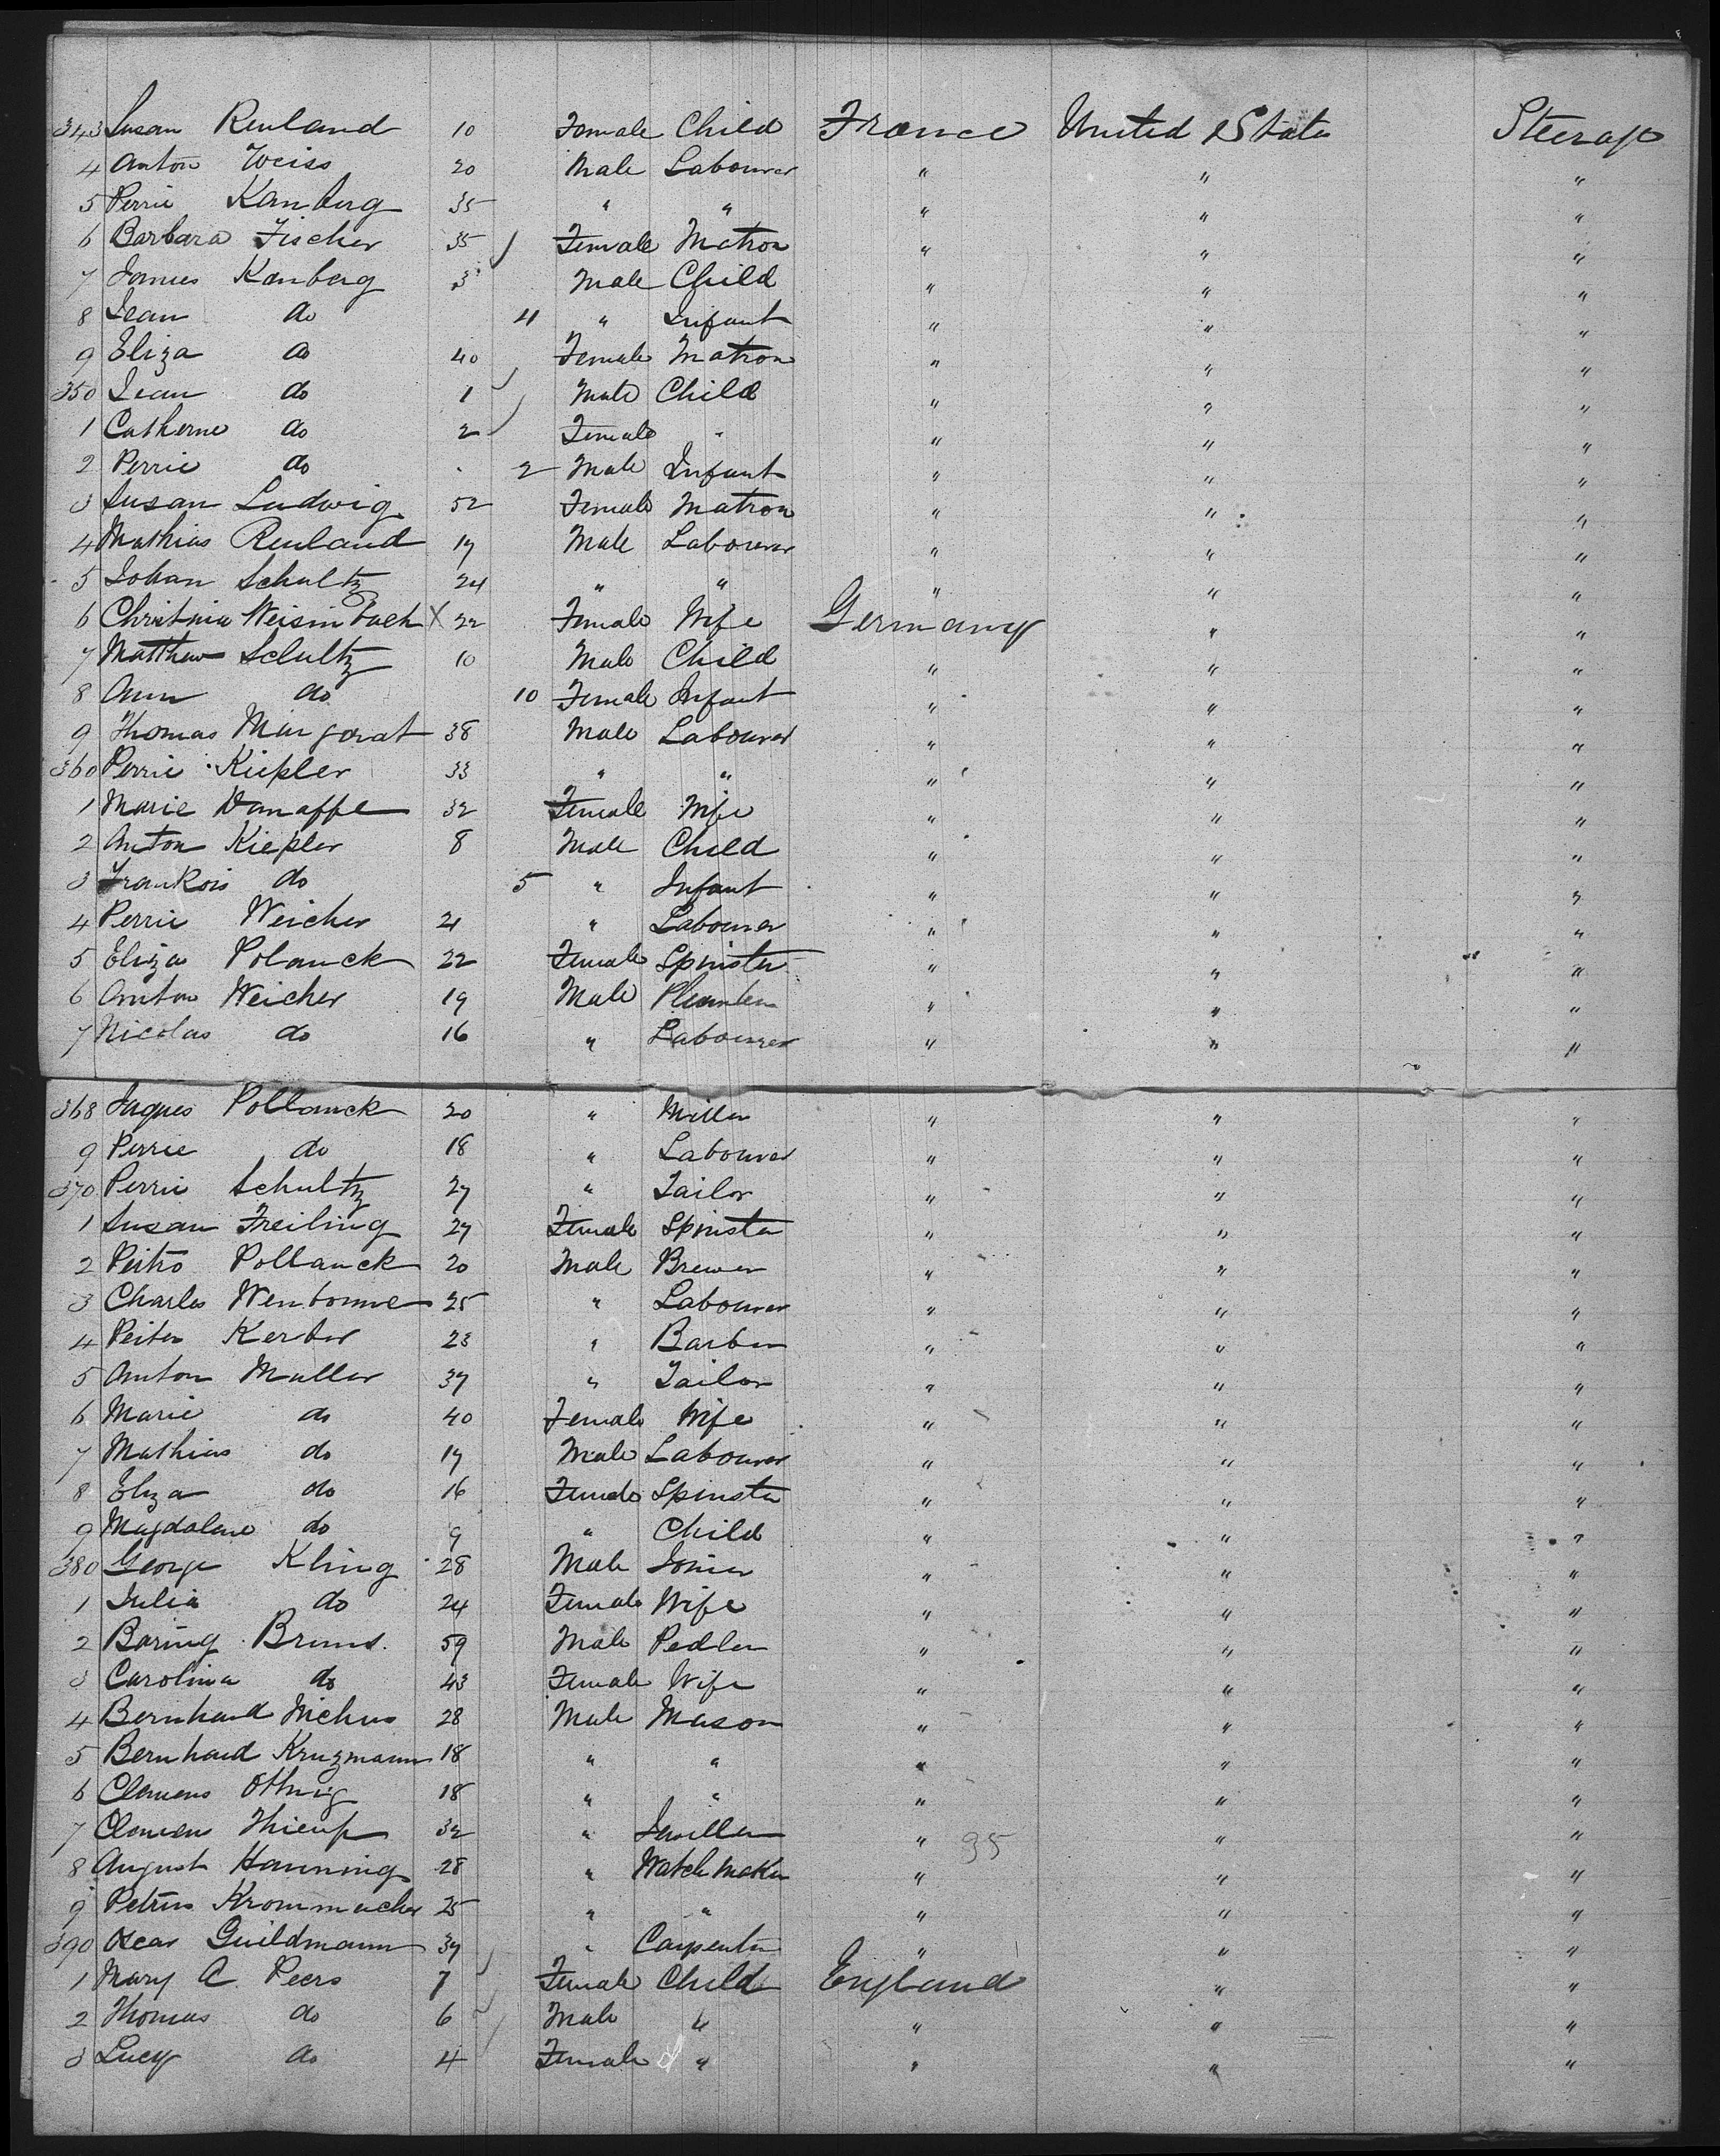 343 Susan Reuland 10 Female Child France United State Steerage
4 Anton Weiss 20 Male Labourer " " "
5 Perrie Kanberg 35 " " " " "
6 Barbara Fischer 35 Female Matron " " "
7 James Kanberg 3 Male Child " " "
8 Jean do 11 " Infant " " "
9 Eliza do 40 Female Matron " " "
350 Jean do 1 Male Child " " "
1 Catherne do 2 Female " " " "
2 Perrie do 2 Male Infant " " "
3 Susan Ludwig 52 Female Matron " " "
4 Mathias Reuland 19 Male Labourer " " "
5 Johan Schultz 24 " " " " "
6 Christnia Weisinbach X 22 Female Wife Germany " "
7 Matthew Schultz 10 Male Child " " "
8 Ann do 10 Female Infant " " "
9 Thomas Margorat 38 Male Labourer " " "
360 Perrie Kiepler 33 " " " " "
1 Marie Vanaffe 32 Female Wife " " "
2 Anton Kiepler 8 Male Child " " "
3 Frankois do 5 " Infant " " "
4 Perrie Weicher 21 " Labourer " " "
5 Eliza Polanck 22 Female Spinster " " "
6 Anton Weicher 19 Male Plumber " " "
7 Nicolas do 16 " Labourer " " "
368 Jaques Pollanck 20 " Miller " " "
9 Perrie do 18 " Labourer " " "
370 Perrie Schultz 27 " Tailor " " "
1 Susan Freiling 27 Female Spinster " " "
2 Peitro Pollanck 20 Male Brewer " " "
3 Charles Wenbonne 25 " Labourer " " "
4 Peiter Kerber 23 " Barber " " "
5 Anton Muller 37 " Tailor " " "
6 Marie do 40 Female Wife " " "
7 Mathias do 19 Male Labourer " " "
8 Eliza do 16 Female Spinster " " "
9 Magdalene do 9 " Child " " "
380 George Kling 28 Male Joiner " " "
1 Julia do 24 Female Wife " " "
2 Baring Bruns. 59 Male Pedler " " "
3 Carolina do 43 Female Wife " " "
4 Bernhard Niehus 28 Male Mason " " "
5 Bernhard Kruzmann 18 " " " " "
6 Clemens Othnig 18 " " " " "
7 Clemens 32 " Jeweller " 95 " "
8 August Hanning 28 " Watch Maker " " "
9 Petrus Krommacher 25 " " " " "
390 Oscar Guildmann 37 " Carpenter " " "
1 Mary A Peers 7 Female Child England " "
2 Thomas do 6 Male " " " "
3 Lucy do 4 Female " " " "